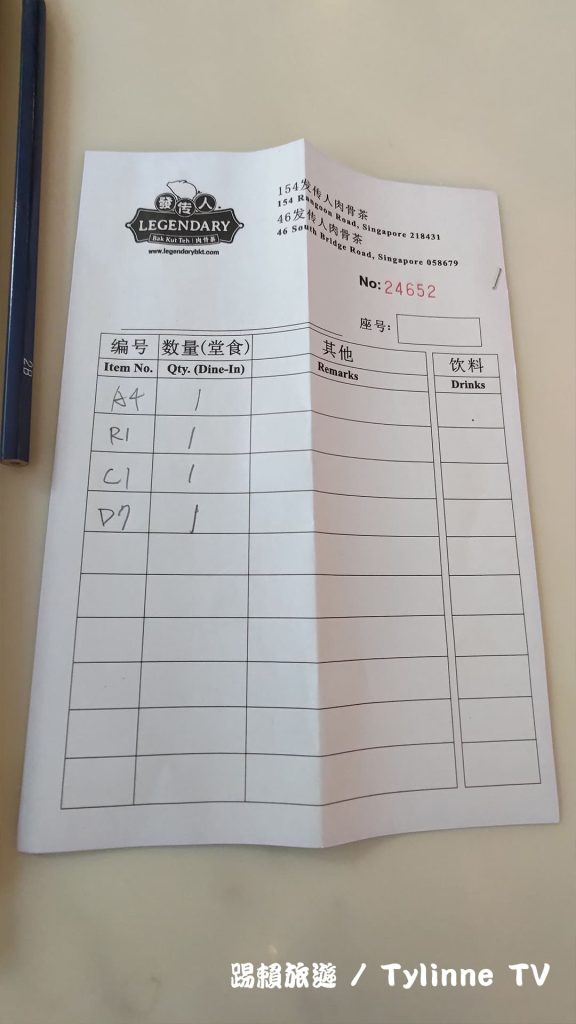 發传人
LEGENDARY
Bak Kut Teh | 肉骨茶
www.legendarybkt.com
154发传人肉骨茶
154 Rangoon Road, Singapore 218431
46发传人肉骨茶
46 South Bridge Road, Singapore 058679
No: 24652
座号:
编号 数量(堂食) 其他 饮料
Item No. Qty. (Dine-In) Remarks Drinks
A4 1
R1 1
C1 1
D7 1
2B
踢賴旅遊 / Tylinne TV